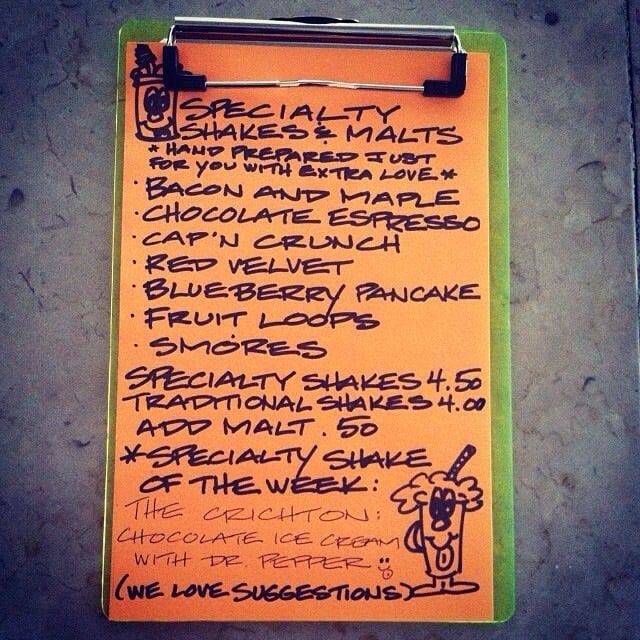 SPECIALTY
SHAKES & MALTS
* HAND PREPARED JUST
FOR YOU WITH EXTRA LOVE *
· BACON AND MAPLE
· CHOCOLATE ESPRESSO
· CAP'N CRUNCH
· RED VELVET
· BLUEBERRY PANCAKE
· FRUIT LOOPS
· SMORES
SPECIALTY SHAKES 4.50
TRADITIONAL SHAKES 4.00
ADD MALT .50
*SPECIALTY SHAKE
OF THE WEEK:
THE CRICHTON:
CHOCOLATE ICE CREAM
WITH DR. PEPPER
(WE LOVE SUGGESTIONS)